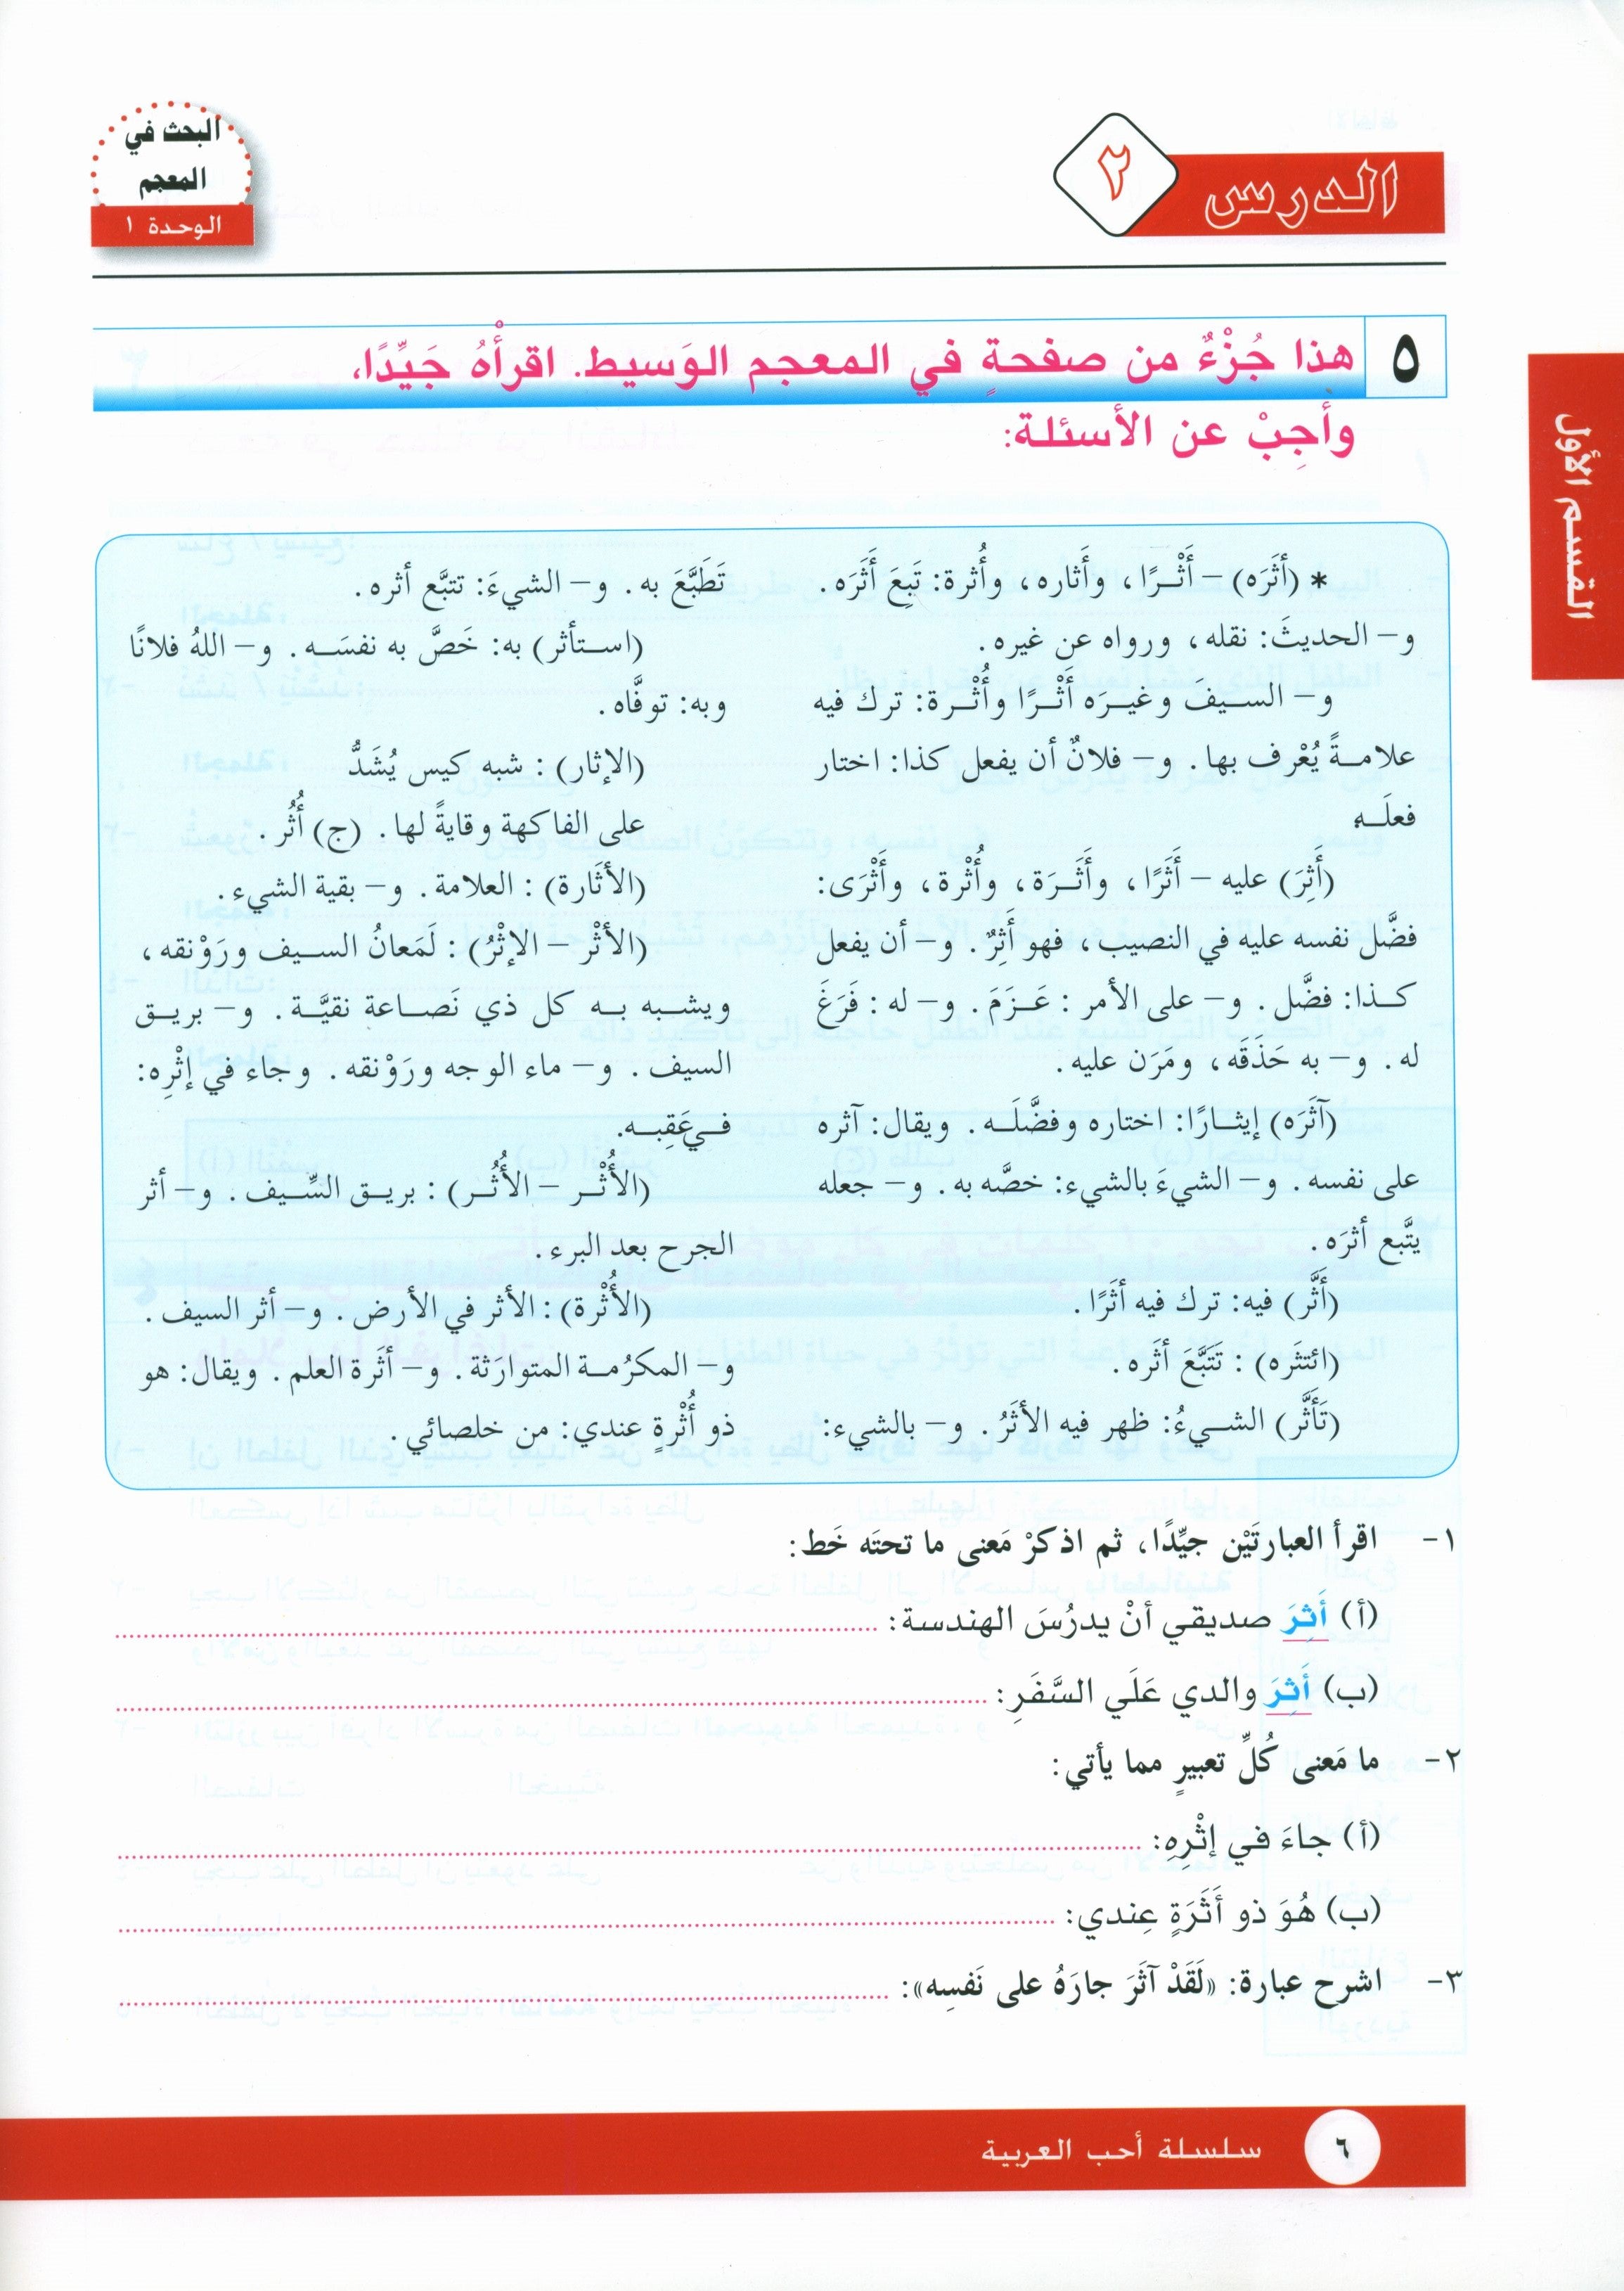 الدرس
٢
البحث في
المعجم
الوحدة ١
القسم الأول
٥
هذا جُزْءٌ من صفحةٍ في المعجم الوَسيط. اقرأْهُ جَيِّدًا،
وأجِبْ عن الأسئلة:
* (أثَرَه) – أَثْـرًا، وأَثاره، وأُثرة: تَبِعَ أَثَرَه.
و– الحديثَ: نقله، ورواه عن غيره.
و– السـيفَ وغيـرَه أَثْـرًا وأُثْـرة: ترك فيه
علامـةً يُعْرف بها. و– فلانٌ أن يفعل كذا: اختار
فعلَـه
(أَثِرَ) عليه – أَثَرًا، وأَثَـرَة، وأُثْرة، وأَثْرَى:
فضَّل نفسه عليه في النصيب، فهو أَثِرٌ. و– أن يفعل
كـذا: فضَّل. و– على الأمر: عَـزَمَ. و– له: فَرَغَ
له. و– به حَذَقَه، ومَرَن عليه.
(آثَرَه) إيثـارًا: اختاره وفضَّلَـه. ويقال: آثره
على نفسه. و– الشيءَ بالشيء: خصَّه به. و– جعله
يتَّبع أثرَه.
(أَثَّر) فيه: ترك فيه أثَرًا.
(ائتثَره): تَتَبَّعَ أثَره.
(تَأَثَّر) الشـيءُ: ظهر فيه الأثَرُ. و– بالشيء:
تَطَبَّعَ به. و– الشيءَ: تتبَّع أثره.
(استأثر) به: خَصَّ به نفسَـه. و– اللهُ فلانًا
وبه: توفَّاه.
(الإثار): شبه كيس يُشَدُّ
على الفاكهة وقايةً لها. (ج) أُثُر.
(الأثَارة): العلامة. و– بقية الشيء.
(الأثْر – الإثْرُ): لَمَعانُ السـيف ورَوْنقه،
ويشـبه بـه كل ذي نَصـاعة نقيَّـة. و– بريـق
السيف. و– ماء الوجه ورَوْنقه. وجاء في إثْرِه:
فـي عَقِبـه.
(الأُثْـر – الأُثُـر): بريـق السِّـيف. و– أثر
الجرح بعد البرء.
(الأُثْرة): الأثر في الأرض. و– أثر السيف.
و– المكرُمـة المتوارَثة. و– أثَرة العلم. ويقال: هو
ذو أُثْرةٍ عندي: من خلصائي.
١- اقرأ العبارتَيْن جيِّدًا، ثم اذكرْ مَعنى ما تحتَه خَط:
(أ) أَثِرَ صديقي أنْ يدرُسَ الهندسة:
(ب) أَثِرَ والدي عَلَي السَّفَرِ:
٢- ما مَعنى كُلِّ تعبيرٍ مما يأتي:
(أ) جاءَ في إثْرِهِ:
(ب) هُوَ ذو أَثَرَةٍ عِندي:
٣- اشرح عبارة: «لَقَدْ آثَرَ جارَهُ على نَفسِه»:
٦
سلسلة أحب العربية